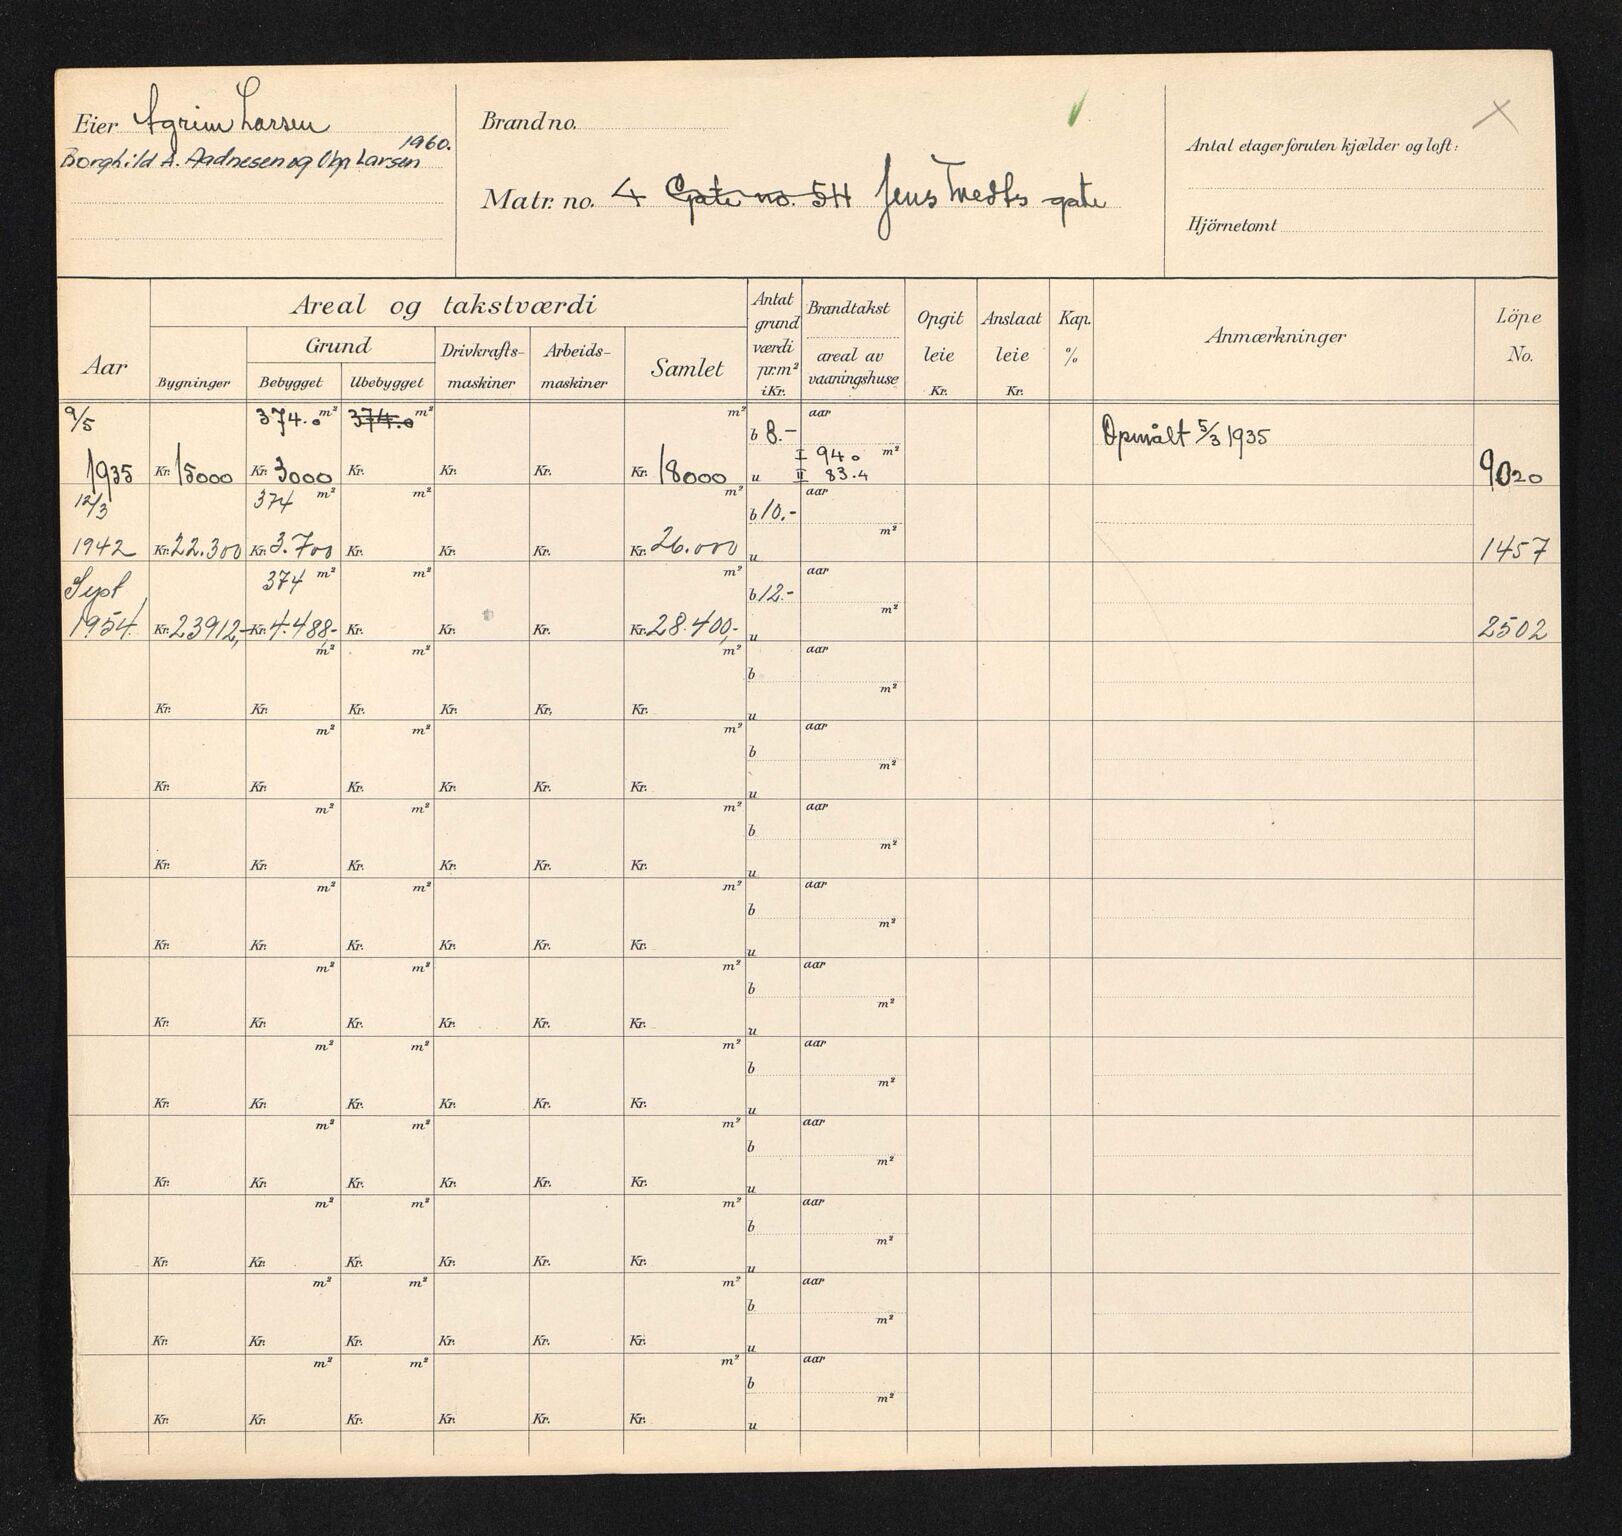 Eier Agrim Larsen
1960.
Borghild A. Aadnesen og Larsen
Brand no.
Matr. no. 4 Gate no. 54 Jens Tvedts gate
Antal etager foruten kjælder og loft:
Hjörnetomt
Aar
Areal og takstværdi
Grund
Bygninger Bebygget Ubebygget
Drivkrafts-
maskiner
Arbeids-
maskiner
Samlet
Antat
grund
værdi
pr.m²
i Kr.
Brandtakst
areal av
vaaningshuse
Opgit
leie
Kr.
Anslaat
leie
Kr.
Kap.
%
Anmærkninger
Löpe
No.
9/5 374.0 m² 374.0 m² m² b 8.- aar Opmålt 5/3 1935
I 94.0 m²
1935 Kr. 15000 Kr. 3000 Kr. Kr. Kr. Kr. 18000 u II 83.4 9020
12/3 374 m² m² m² b 10.- aar
m²
1942 Kr. 22.300 Kr. 3.700 Kr. Kr. Kr. Kr. 26.000 u 1457
Sept 374 m² m² m² b 12.- aar
m²
1954 Kr. 23912,- Kr. 4.488- Kr. Kr. Kr. Kr. 28.400,- u 2502
m² m² m² aar
b m²
Kr. Kr. Kr. Kr. Kr. Kr. u
m² m² m² aar
b m²
Kr. Kr. Kr. Kr. Kr. Kr. u
m² m² m² aar
b m²
Kr. Kr. Kr. Kr. Kr. Kr. u
m² m² m² aar
b m²
Kr. Kr. Kr. Kr. Kr. Kr. u
m² m² m² aar
b m²
Kr. Kr. Kr. Kr. Kr. Kr. u
m² m² m² aar
b m²
Kr. Kr. Kr. Kr. Kr. Kr. u
m² m² m² aar
b m²
Kr. Kr. Kr. Kr. Kr. Kr. u
m² m² m² aar
b m²
Kr. Kr. Kr. Kr. Kr. Kr. u
m² m² m² aar
b m²
Kr. Kr. Kr. Kr. Kr. Kr. u
m² m² m² aar
b m²
Kr. Kr. Kr. Kr. Kr. Kr. u